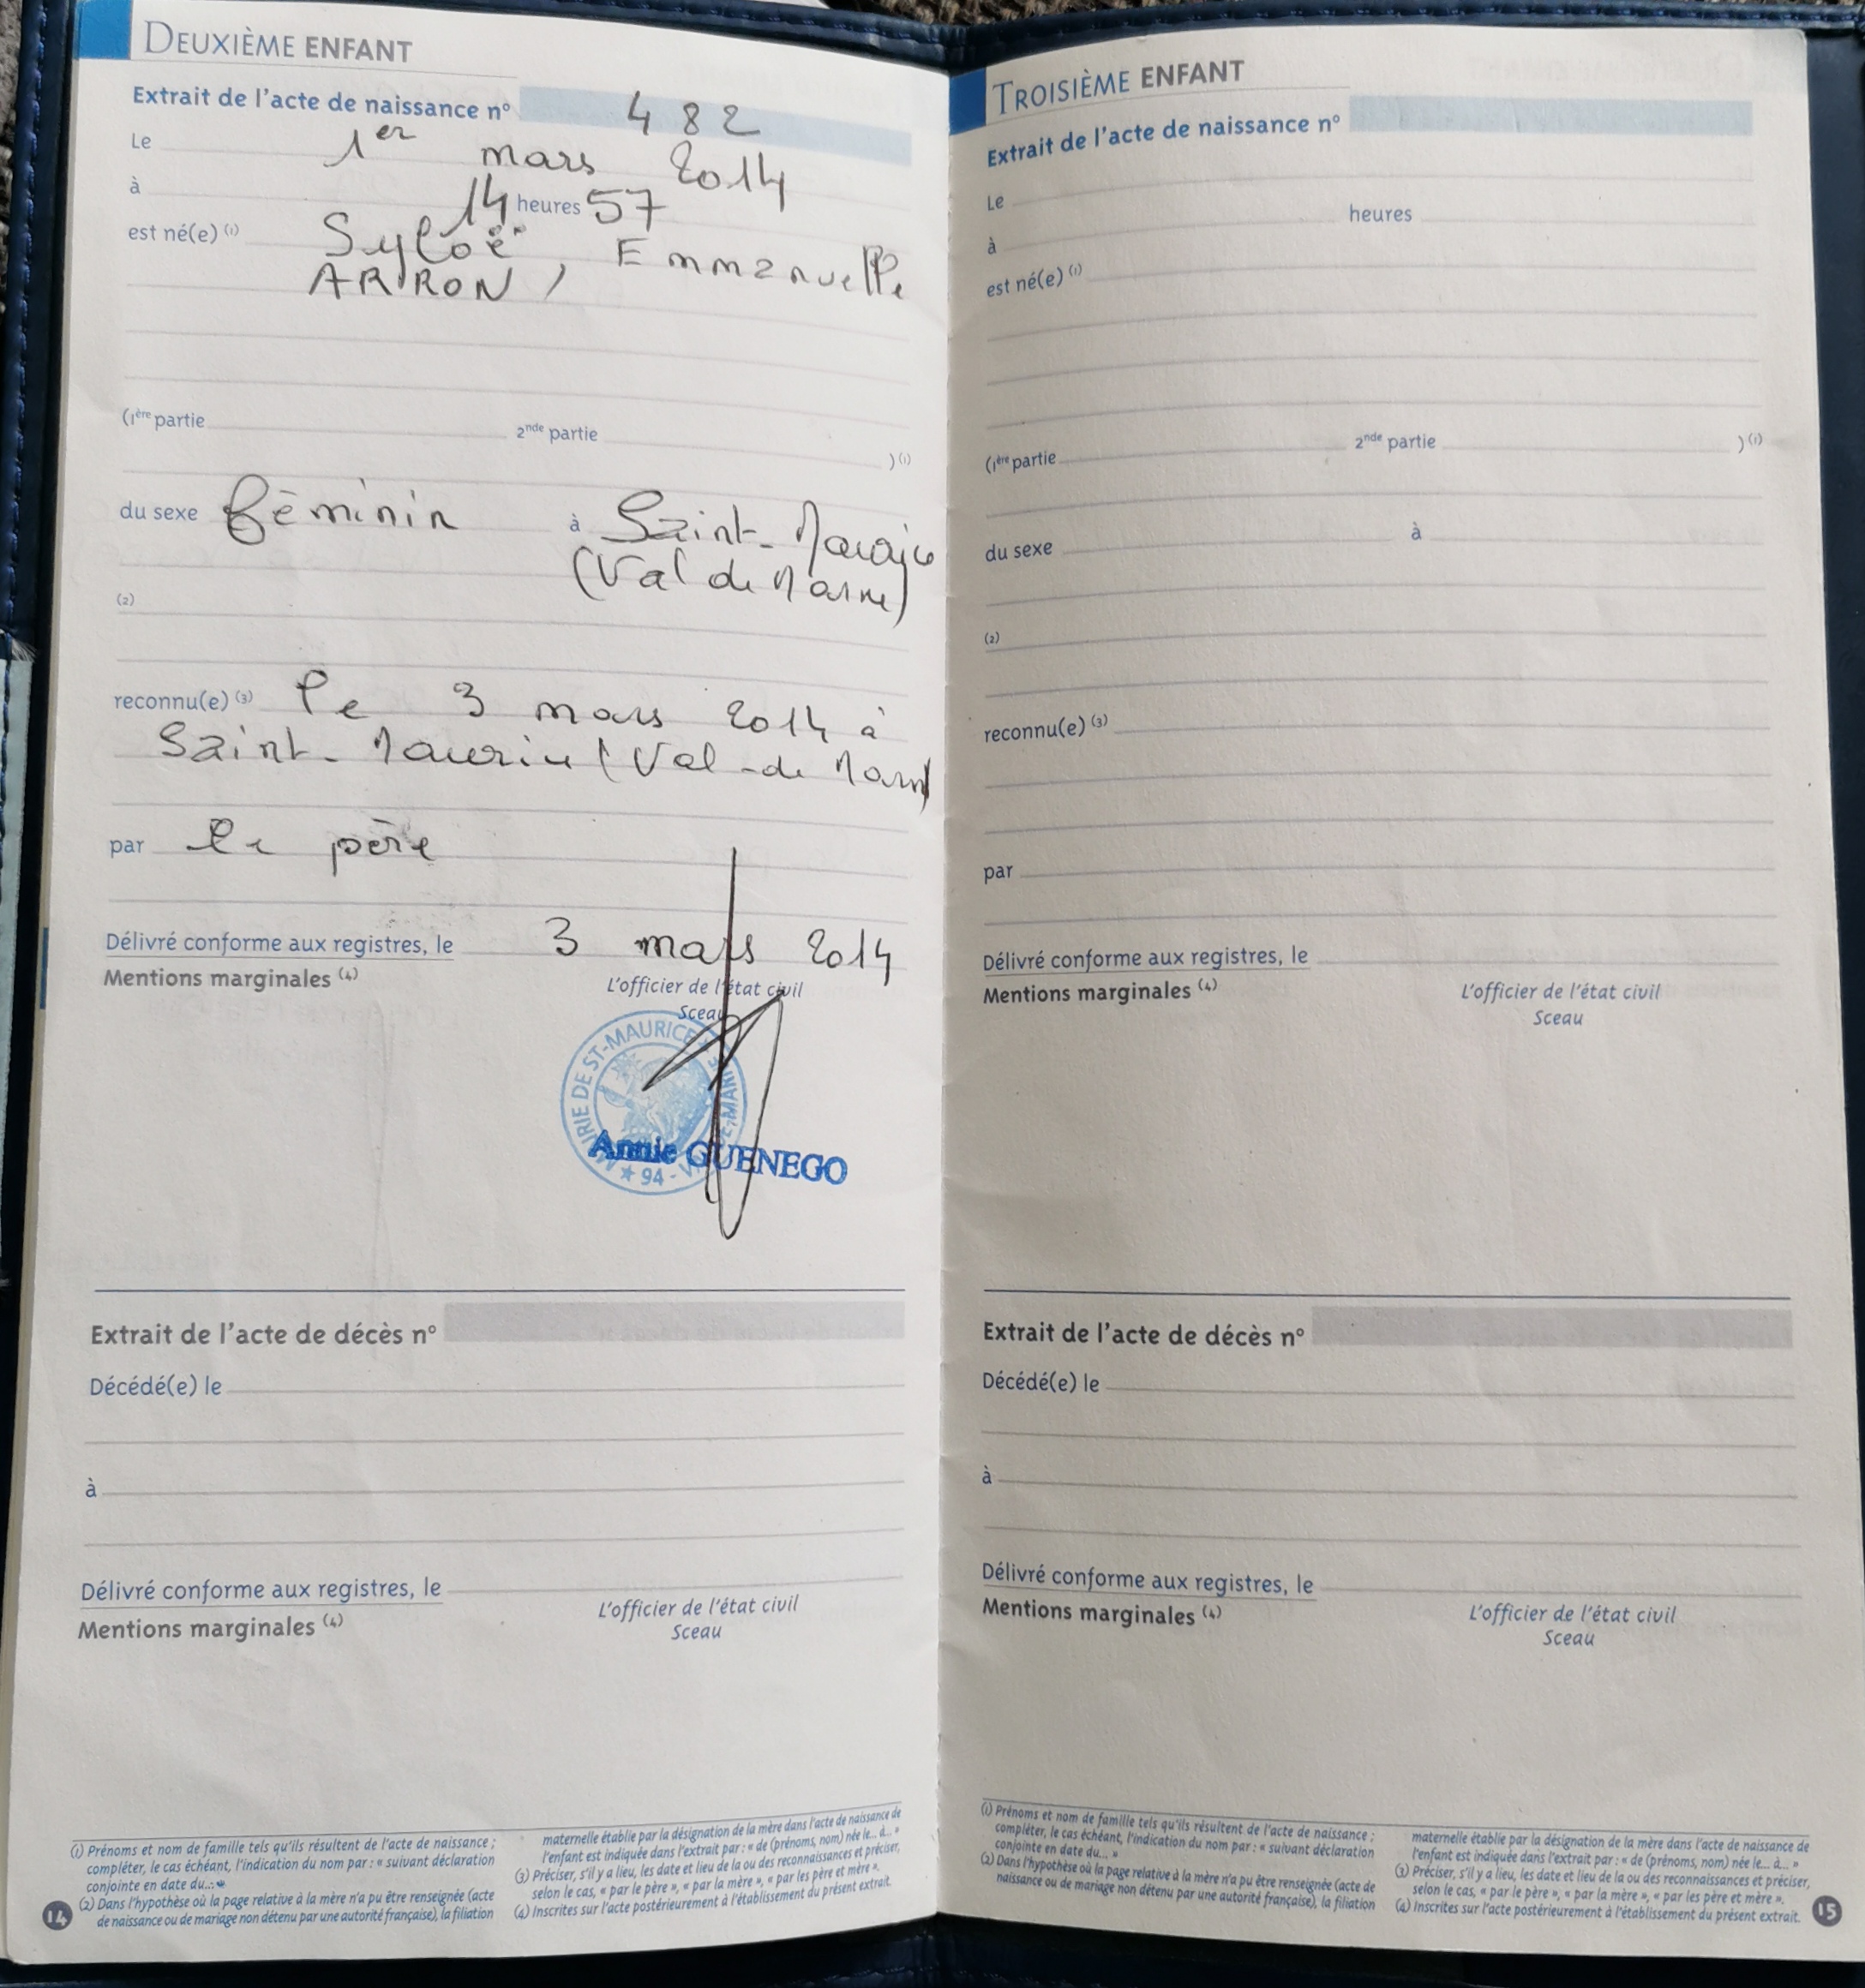 DEUXIÈME ENFANT
Extrait de l'acte de naissance n° 482
Le 1er mars 2014
à 14 heures 57
est né(e) (1) Syloë, Emmanuelle
ARRON
(1ère partie 2nde partie ) (1)
du sexe féminin à Saint-Maurice
(Val de Marne)
(2)
reconnu(e) (3) le 3 mars 2014 à
Saint-Maurice (Val-de Marne
par le père
Délivré conforme aux registres, le 3 mars 2014
Mentions marginales (4)
L'officier de l'état civil
Sceau
MAIRIE DE ST-MAURICE
94
Annie GUENEGO
Extrait de l'acte de décès n°
Décédé(e) le
à
Délivré conforme aux registres, le
Mentions marginales (4)
L'officier de l'état civil
Sceau
(1) Prénoms et nom de famille tels qu'ils résultent de l'acte de naissance ;
compléter, le cas échéant, l'indication du nom par : « suivant déclaration
conjointe en date du... »
(2) Dans l'hypothèse où la page relative à la mère n'a pu être renseignée (acte
de naissance ou de mariage non détenu par une autorité française), la filiation
maternelle établie par la désignation de la mère dans l'acte de naissance de
l'enfant est indiquée dans l'extrait par : « de (prénoms, nom) née le... à... »
(3) Préciser, s'il y a lieu, les dates et lieu de la ou des reconnaissances et préciser,
selon le cas, « par le père », « par la mère », « par les père et mère ».
(4) Inscrites sur l'acte postérieurement à l'établissement du présent extrait.
14
TROISIÈME ENFANT
Extrait de l'acte de naissance n°
Le
heures
à
est né(e) (1)
(1ère partie 2nde partie ) (1)
du sexe à
(2)
reconnu(e) (3)
par
Délivré conforme aux registres, le
Mentions marginales (4)
L'officier de l'état civil
Sceau
Extrait de l'acte de décès n°
Décédé(e) le
à
Délivré conforme aux registres, le
Mentions marginales (4)
L'officier de l'état civil
Sceau
(1) Prénoms et nom de famille tels qu'ils résultent de l'acte de naissance ;
compléter, le cas échéant, l'indication du nom par : « suivant déclaration
conjointe en date du... »
(2) Dans l'hypothèse où la page relative à la mère n'a pu être renseignée (acte de
naissance ou de mariage non détenu par une autorité française), la filiation
maternelle établie par la désignation de la mère dans l'acte de naissance de
l'enfant est indiquée dans l'extrait par : « de (prénoms, nom) née le... à... »
(3) Préciser, s'il y a lieu, les dates et lieu de la ou des reconnaissances et préciser,
selon le cas, « par le père », « par la mère », « par les père et mère ».
(4) Inscrites sur l'acte postérieurement à l'établissement du présent extrait.
15